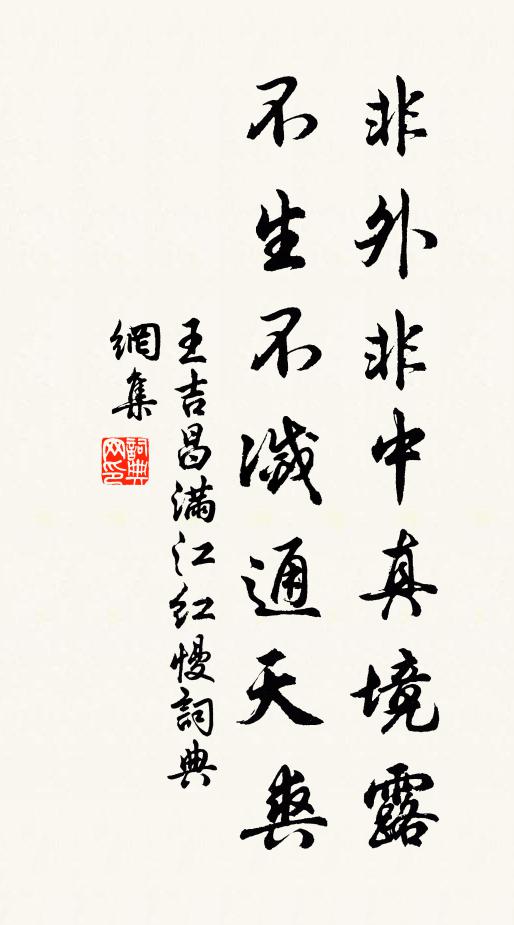 非外非中真境露
不生不滅通天爽
王吉昌满江红慢詞典
網集
詞典網印